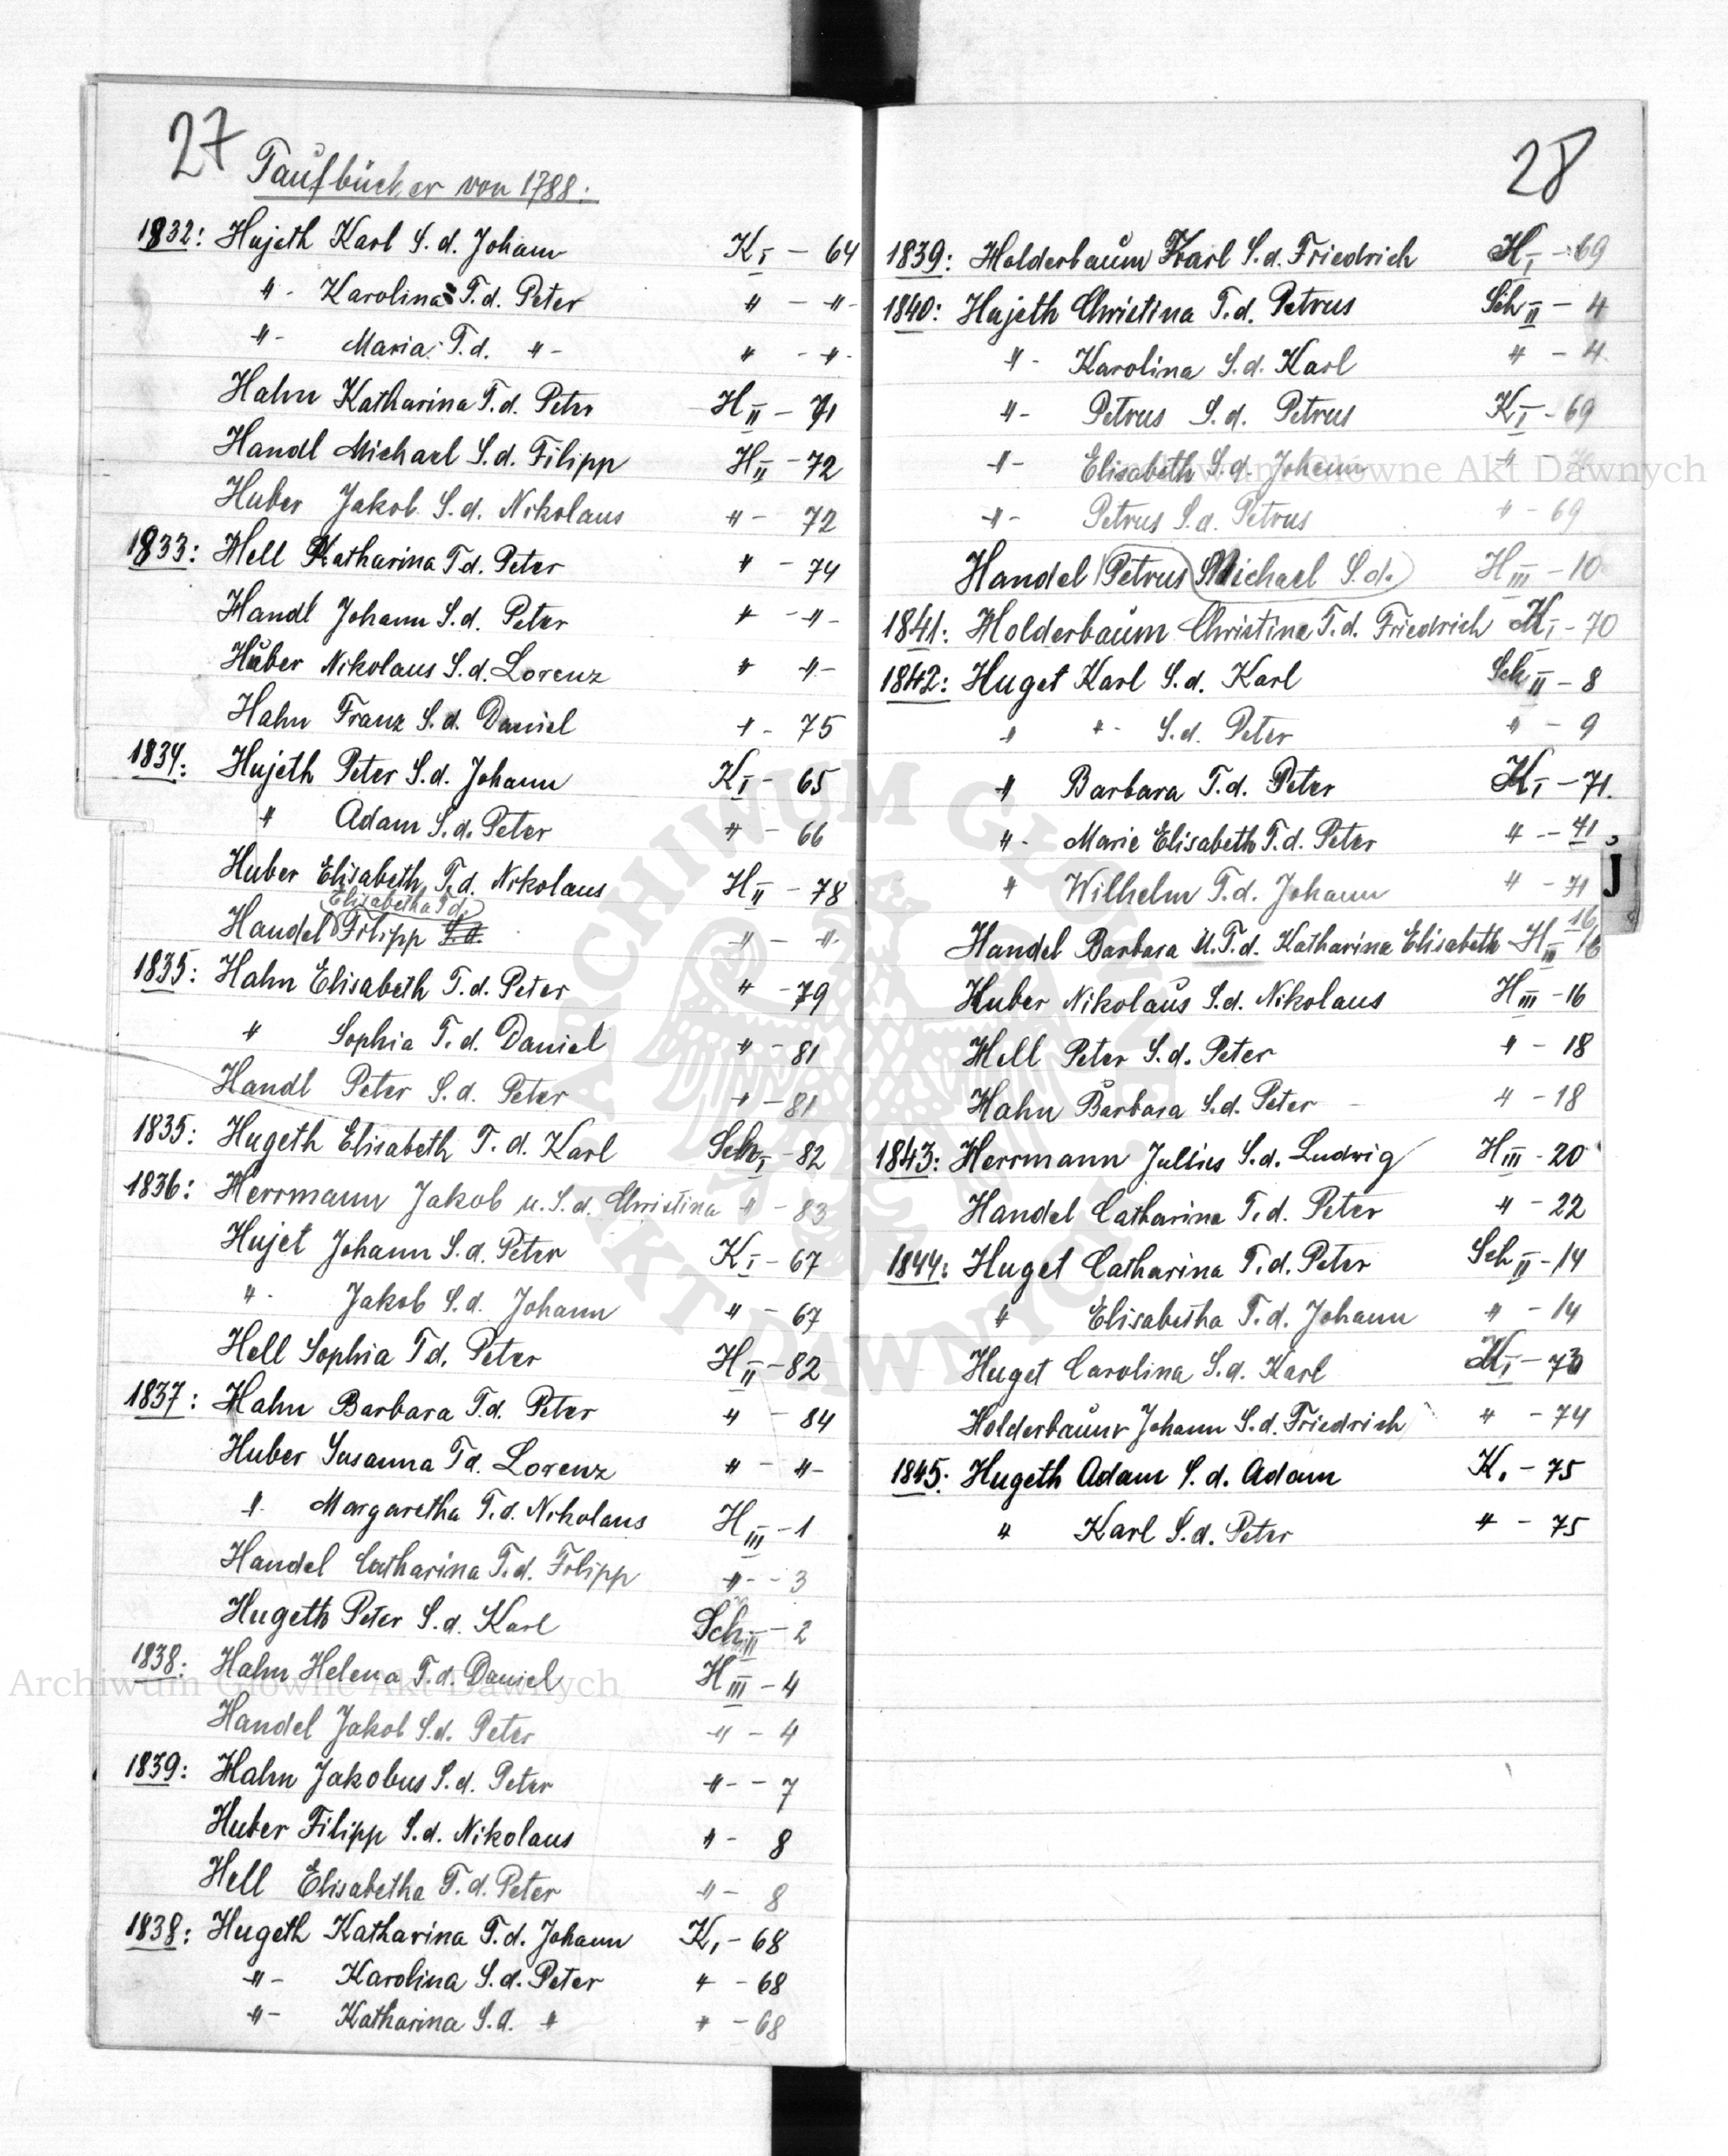 27
Taufbücher von 1788:
1832: Hujeth Karl S. d. Johann K I – 64
" - Karolina T. d. Peter " – "-
" - Maria T. d. " - " - " -
Hahn Katharina T. d. Peter H II – 71
Handl Michael S. d. Filipp H II – 72
Huber Jakob S. d. Nikolaus " – 72
1833: Hell Katharina T. d. Peter " – 74
Handl Johann S. d. Peter " – " –
Huber Nikolaus S. d. Lorenz " " –
Hahn Franz S. d. Daniel " - 75
1834: Hujeth Peter S. d. Johann K I – 65
" Adam S. d. Peter " – 66
Huber Elisabeth T. d. Nikolaus H II – 78
Elisabetha T. d.
Handel Filipp S. d. " – "
1835: Hahn Elisabeth T. d. Peter " – 79
" Sophia T. d. Daniel " – 81
Handl Peter S. d. Peter " – 81
1835: Hugeth Elisabeth T. d. Karl Sch I – 82
1836: Herrmann Jakob u. S. d. Christina " – 83
Hujet Johann S. d. Peter K I – 67
" - Jakob S. d. Johann " – 67
Hell Sophia T d. Peter H II – 82
1837: Hahn Barbara T. d. Peter " – 84
Huber Susanna T d. Lorenz " – " –
" Margaretha T. d. Nikolaus H III – 1
Handel Catharina T. d. Filipp " - - 3
Hugeth Peter S. d. Karl Sch II – 2
1838: Hahn Helena T. d. Daniel H III – 4
Handel Jakob S. d. Peter " – 4
1839: Hahn Jakobus S. d. Peter " - – 7
Huber Filipp S. d. Nikolaus " – 8
Hell Elisabetha T. d. Peter " – 8
1838: Hugeth Katharina T. d. Johann K I – 68
" – Karolina S. d. Peter " – 68
" – Katharina S. d. " " – 68
28
1839: Holderbaum Karl S. d. Friedrich K I – 69
1840: Hujeth Christina T. d. Petrus Sch II – 4
" - Karolina S. d. Karl " – 4
" - Petrus S. d. Petrus K I – 69
" - Elisabeth S. d. Johann "
" - Petrus S. d. Petrus " – 69
Handel (Petrus) (Michael S. d.) H III – 10
1841: Holderbaum Christine T. d. Friedrich K I – 70
1842: Huget Karl S. d. Karl Sch II – 8
" " - S. d. Peter " – 9
" Barbara T. d. Peter K I – 71.
" - Marie Elisabeth T. d. Peter " – 71
" Wilhelm T. d. Johann " – 71
16
Handel Barbara u. T. d. Katharina Elisabeth H III 16
Huber Nikolaus S. d. Nikolaus H III – 16
Hell Peter S. d. Peter " – 18
Hahn Barbara S. d. Peter " – 18
1843: Herrmann Julius S. d. Ludwig H III – 20
Handel Catharina T. d. Peter " – 22
1844: Huget Catharina T. d. Peter Sch II – 14
" Elisabetha T. d. Johann " – 14
Huget Carolina S. d. Karl K I – 73
Holderbaum Johann S. d. Friedrich " – 74
1845: Hugeth Adam S. d. Adam K I – 75
" Karl S. d. Peter " – 75
J
Archiwum Główne Akt Dawnych
Archiwum Główne Akt Dawnych
ARCHIWUM GŁÓWNE AKT DAWNYCH